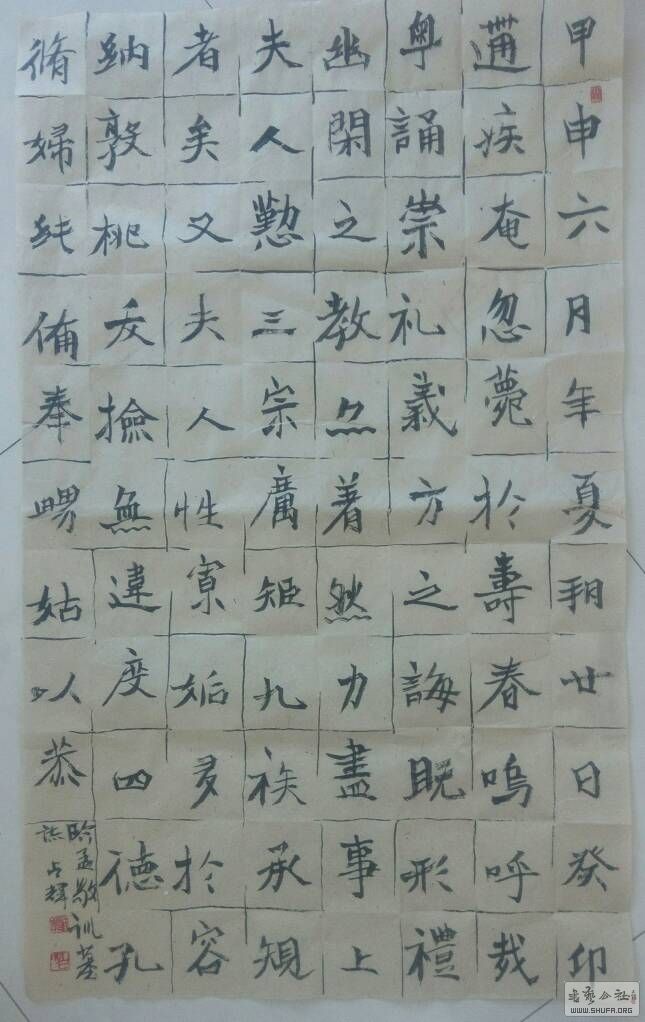 甲申六月年夏朔廿日癸卯
遘疾奄忽薨於壽春嗚呼哉
粤誦崇礼義方之誨既形禮
幽閑之教尒着然力盡事上
夫人懃三宗廣矩九族承規
者矣又夫人性寡妬多於容
納敦桃夭撿無違度四德孔
脩婦純備奉舅姑以恭
臨孟敬訓墓
誌占輝
WWW.SHUFA.ORG